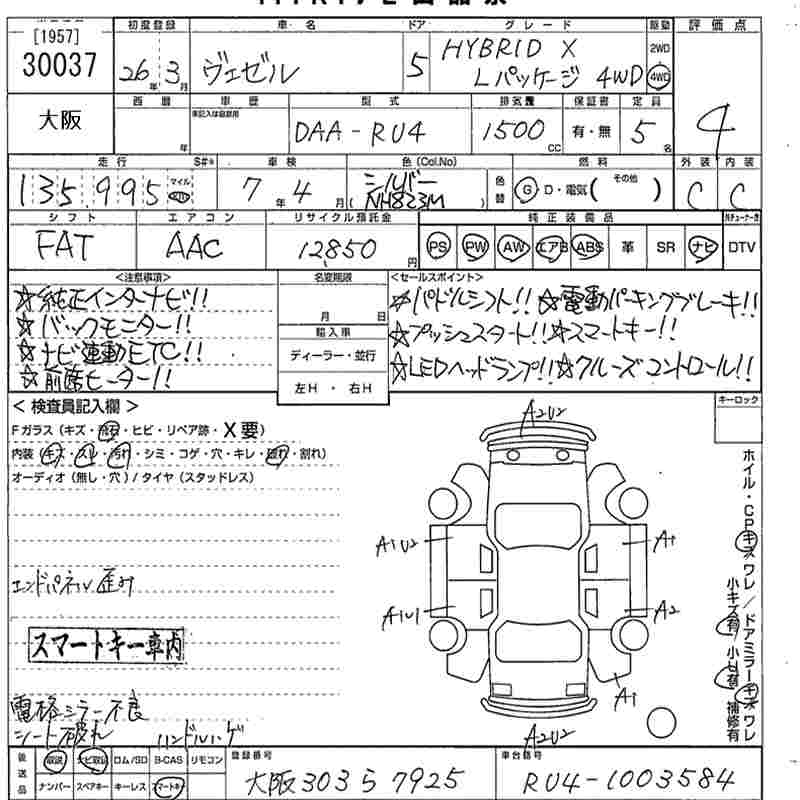 [1957]
30037
大阪
初度登録 車・名 ドア グレード 駆動 評価点
26年 3月 ヴェゼル 5 HYBRID X
Lパッケージ 4WD
2WD
4WD
西暦 車歴 型式 排気量 保証書 定員
年 未記入は自家用 DAA-RU4 1500 CC 有・無 5名 4
走行 S#* 車検 色(Col.No) 燃料 外装 内装
135,995 マイル 7年 4月 シルバー
( NH823M ) 色替 G D・電気( その他 ) C C
シフト エアコン リサイクル預託金 純正装備品
FAT AAC 12850円 PS PW AW エアB ABS 革 SR ナビ DTV
<注意事項> 名変期限 <セールスポイント>
☆純正インターナビ!!
☆バックモニター!!
☆ナビ連動ETC!!
☆前席ヒーター!!
月 日
輸入車
ディーラー・並行
左H ・ 右H
☆パドルシフト!! ☆電動パーキングブレーキ!!
☆プッシュスタート!! ☆スマートキー!!
☆LEDヘッドランプ!! ☆クルーズコントロール!!
キーロック
<検査員記入欄>
Fガラス (キズ・飛石・ヒビ・リペア跡・X要)
内装 (キズ・スレ・汚れ・シミ・コゲ・穴・キレ・破れ・割れ)
オーディオ (無し・穴) / タイヤ (スタッドレス)
エンドパネル歪み
スマートキー車内
電格ミラー不良
シート破れ ハンドルハゲ
A2U2
A1U2 A1
A1U1 A2
A1
A2U2
ホイル・CPキズワレ/ドアミラーキズワレ
小キズ有 小凹有 補修有
後送品 取説 ナビ取説 ロム/SD B-CAS リモコン
ナンバー スペアキー キーレス スマートキー
登録番号 車台番号
大阪 303 ら 7925 RU4-1003584